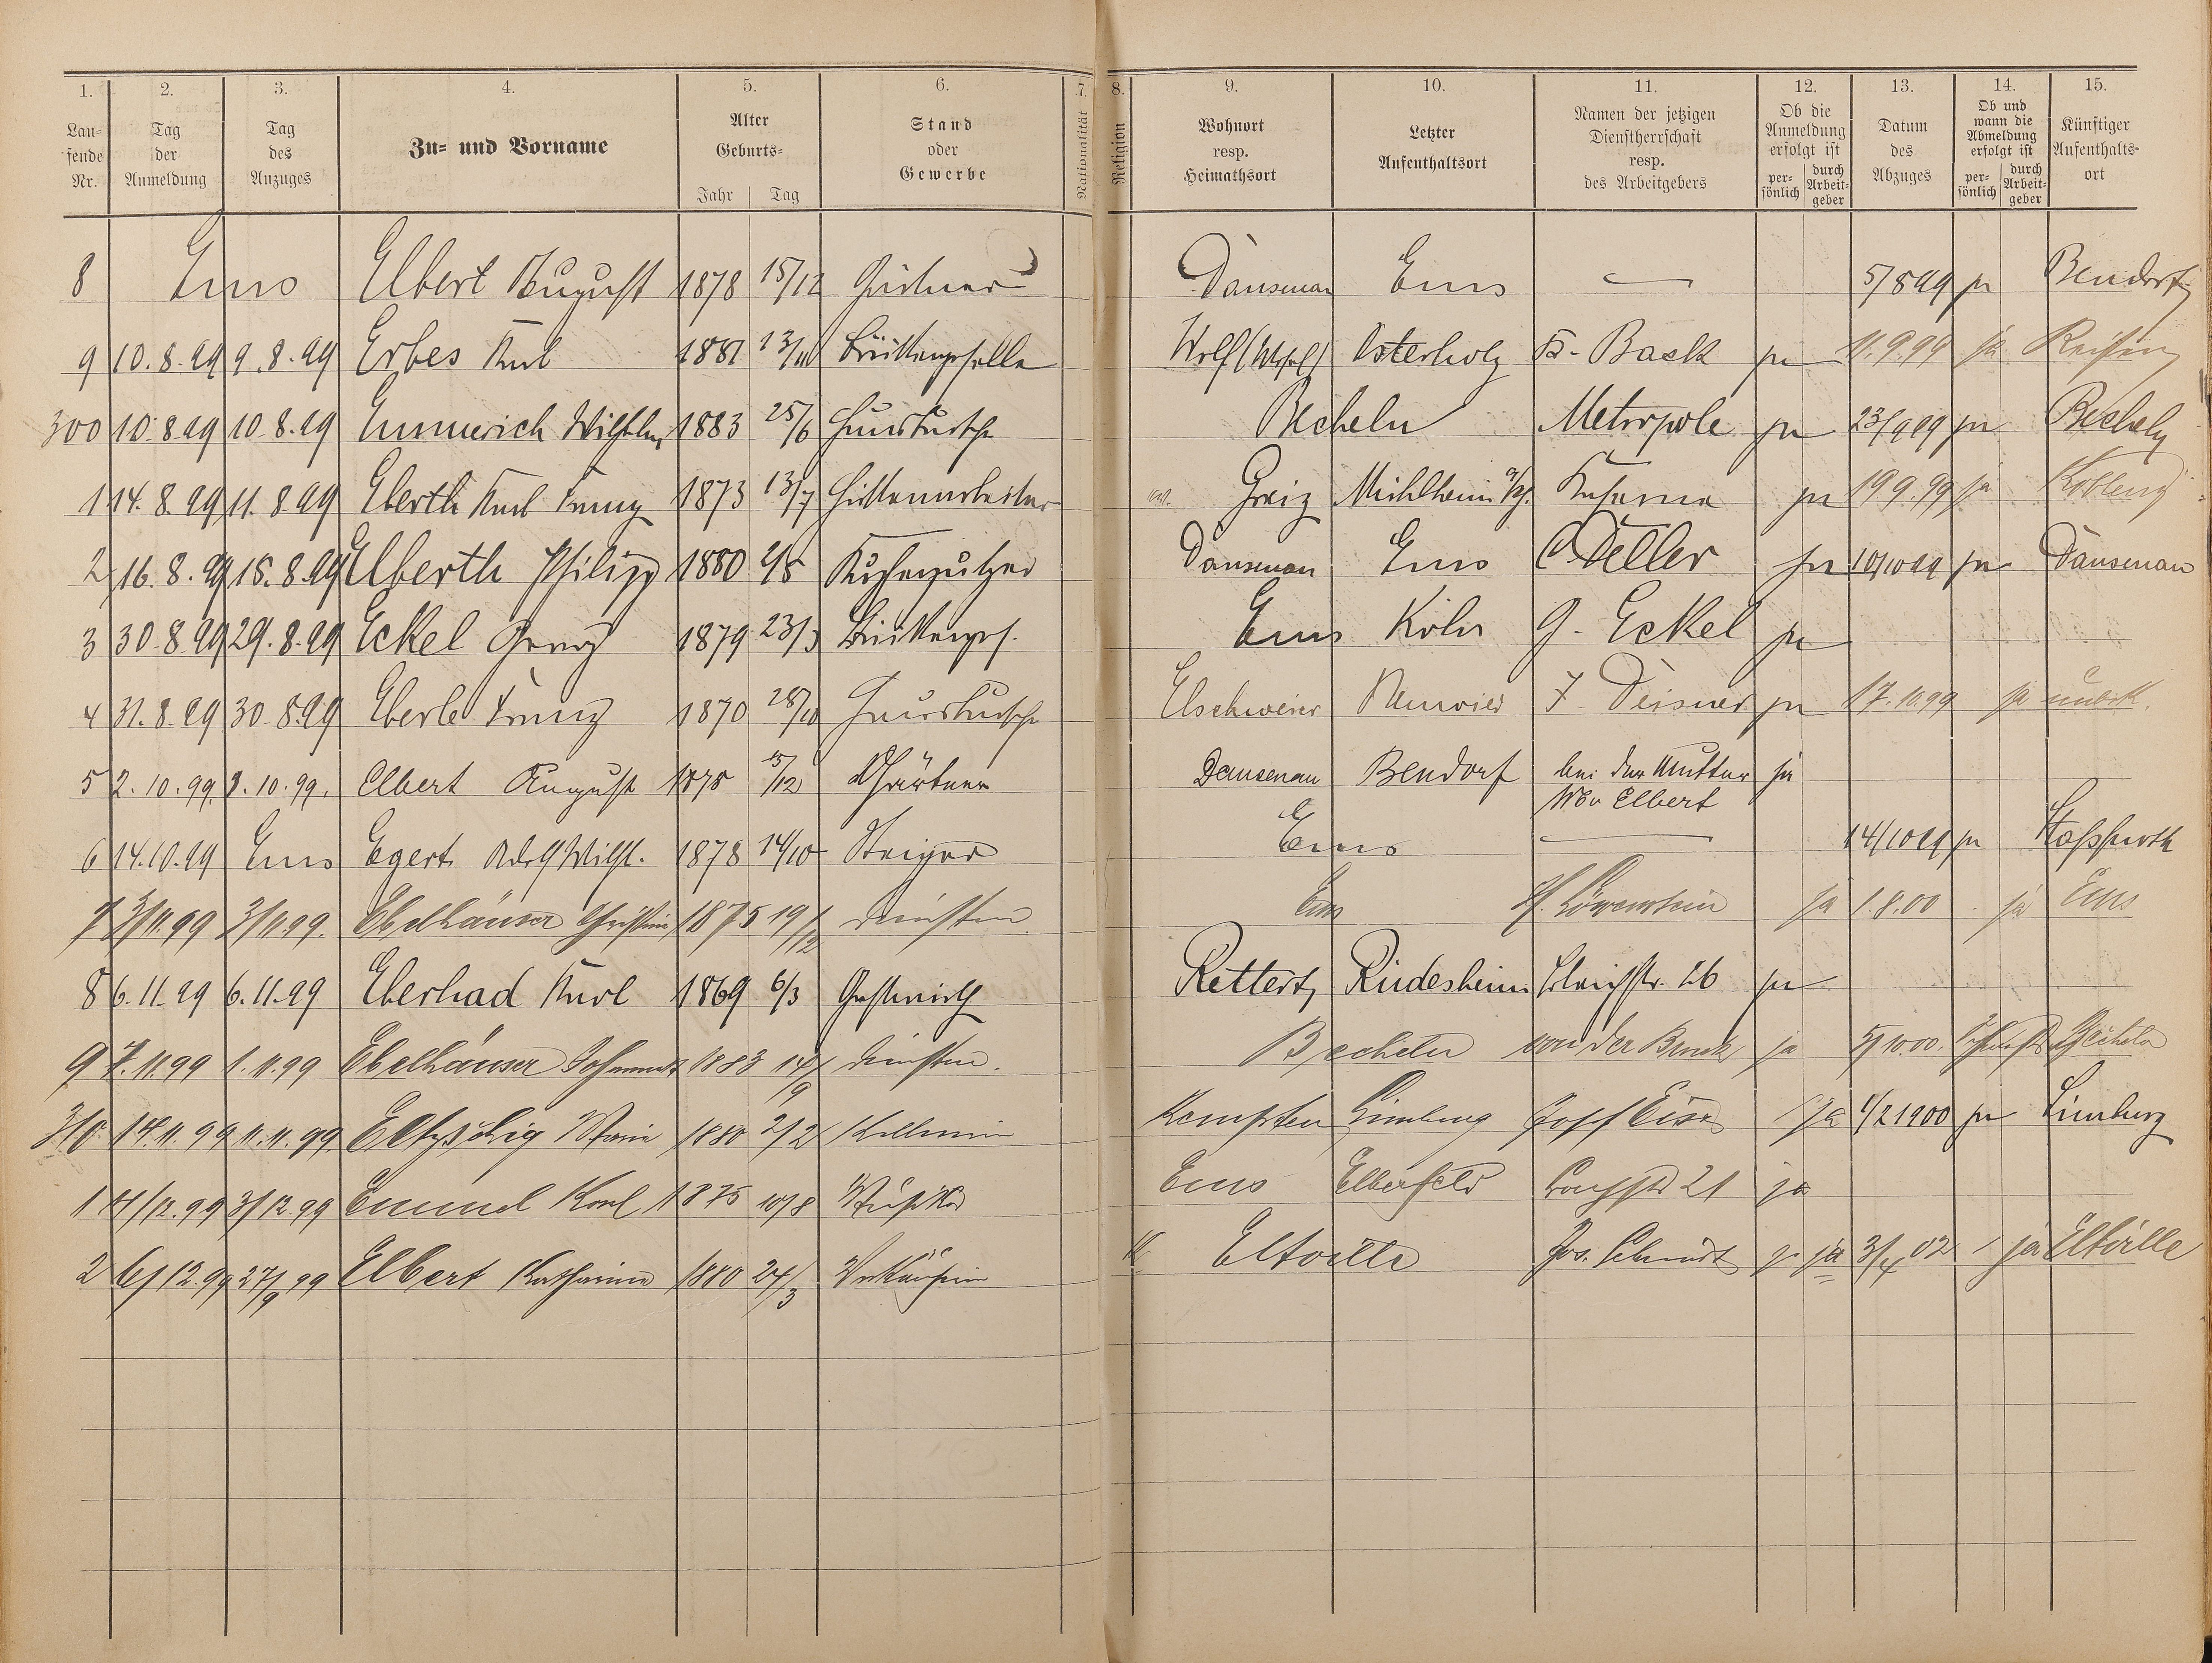 1. 2. 3. 4. 5. 6. 7. 8. 9. 10. 11. 12. 13. 14. 15.
Lau-
fende
Nr.
Tag
der
Anmeldung
Tag
des
Anzuges
Zu- und Vorname
Alter
Geburts-
Jahr Tag
Stand
oder
Gewerbe
Nationalität
Religion
Wohnort
resp.
Heimathsort
Letzter
Aufenthaltsort
Namen der jetzigen
Dienstherrschaft
resp.
des Arbeitgebers
Ob die
Anmeldung
erfolgt ist
per-
sönlich
durch
Arbeit-
geber
Datum
des
Abzuges
Ob und
wann die
Abmeldung
erfolgt ist
per-
sönlich
durch
Arbeit-
geber
Künftiger
Aufenthalts-
ort
8 Ems Elbert August 1878 15/12 Gärtner Dausenau Ems — 5/8 99 ja Bendorf
9 10.8.99 9.8.99 Erbes Karl 1881 Wolf Osterholz Back ja 11.9.99 ja Reisen
300 10.8.99 10.8.99 Emmerich Wilhelm 1883 25/6 Hausbursche Becheln Metropole ja 23/9 99 ja Becheln
1 14.8.99 11.8.99 Eberth Karl Franz 1873 13/7 Hüttenarbeiter Greiz Mühlheim Kaserne ja 19.9.99 ja Koblenz
2 16.8.99 15.8.99 Elberth Philipp 1880 Dausenau Ems ja 10/10 99 ja Dausenau
3 30.8.99 29.8.99 Eckel Georg 1879 23/3 Ems Köln G. Eckel ja
4 31.8.99 30.8.99 Eberle Franz 1870 28/10 Hausbursche Elschweier Neuwied J. Deisner ja 17.10.99 ja unbek.
5 2.10.99. 1.10.99. Elbert August 1878 15/12 Gärtner Dausenau Bendorf bei der Mutter ja
Wwe Elbert
6 14.10.99 Ems Egert Adolf Wilh. 1878 14/10 Steiger Ems — 14/10 99 ja Staßfurth
7 3/11.99 3/11.99. Ebelhäuser Christine 1875 19/12 Ems H. Löwenstein ja 1.8.00 ja Ems
8 6.11.99 6.11.99 Eberhad Karl 1869 6/3 Gastwirth Rettert Rüdesheim ja
9 7.11.99 1.11.99 Ebelhäuser 1883 14/9 Becheln von der Bruck ja Becheln
310. 14.11.99 11.11.99. Marie 1880 2/2 Kellnerin Kempten Limburg Josef ja 1/2 1900 ja Limburg
1 4/12.99 3/12.99 Emmel Karl 1875 10/8 Musiker Ems Elberfeld 21 ja
2 6/12.99 27/9 99 Elbert Katharina 1880 24/3 Verkäuferin Eltville Jos. Schmidt ja 3/4 02 ja Eltville